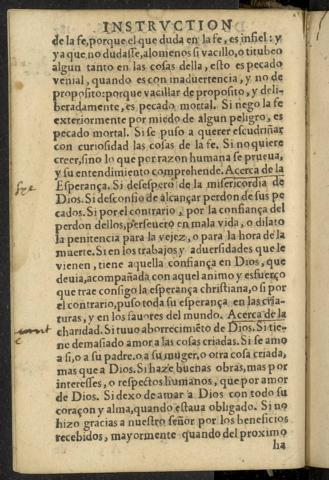 INSTRVCTION
de la fe, porque el que duda en la fe, es infiel: y
ya que no dudasse, alomenos si vacillo, o titubeo
algun tanto en las cosas della, esto es pecado
venial, quando es con inaduertencia, y no de
proposito: porque vacillar de proposito, y deli-
beradamente, es pecado mortal. Si nego la fe
exteriormente por miedo de algun peligro, es
pecado mortal. Si se puso a querer escudriñar
con curiosidad las cosas de la fe. Si no quiere
creer, sino lo que por razon humana se prueua,
y su entendimiento comprehende. Acerca de la
Esperança. Si desespero de la misericordia de
Dios. Si desconfio de alcançar perdon de sus pe
cados. Si por el contrario, por la confiança del
perdon dellos, perseuero en mala vida, o dilato
la penitencia para la vejez, o para la hora de la
muerte. Si en los trabajos y aduersidades que le
vienen, tiene aquella confiança en Dios, que
deuia, acompañada con aquel animo y esfuerço
que trae consigo la esperança christiana, o si por
el contrario, puso toda su esperança en las cria-
turas, y en los fauores del mundo. Acerca de la
charidad. Si tuuo aborrecimiẽto de Dios. Si tie-
ne demasiado amor a las cosas criadas. Si se amo
a si, o a su padre, o a su muger, o otra cosa criada,
mas que a Dios. Si haze buenas obras, mas por
interesses, o respectos humanos, que por amor
de Dios. Si dexo de amar a Dios con todo su
coraçon y alma, quando estaua obligado. Si no
hizo gracias a nuestro señor por los beneficios
recebidos, mayormente quando del proximo
ha